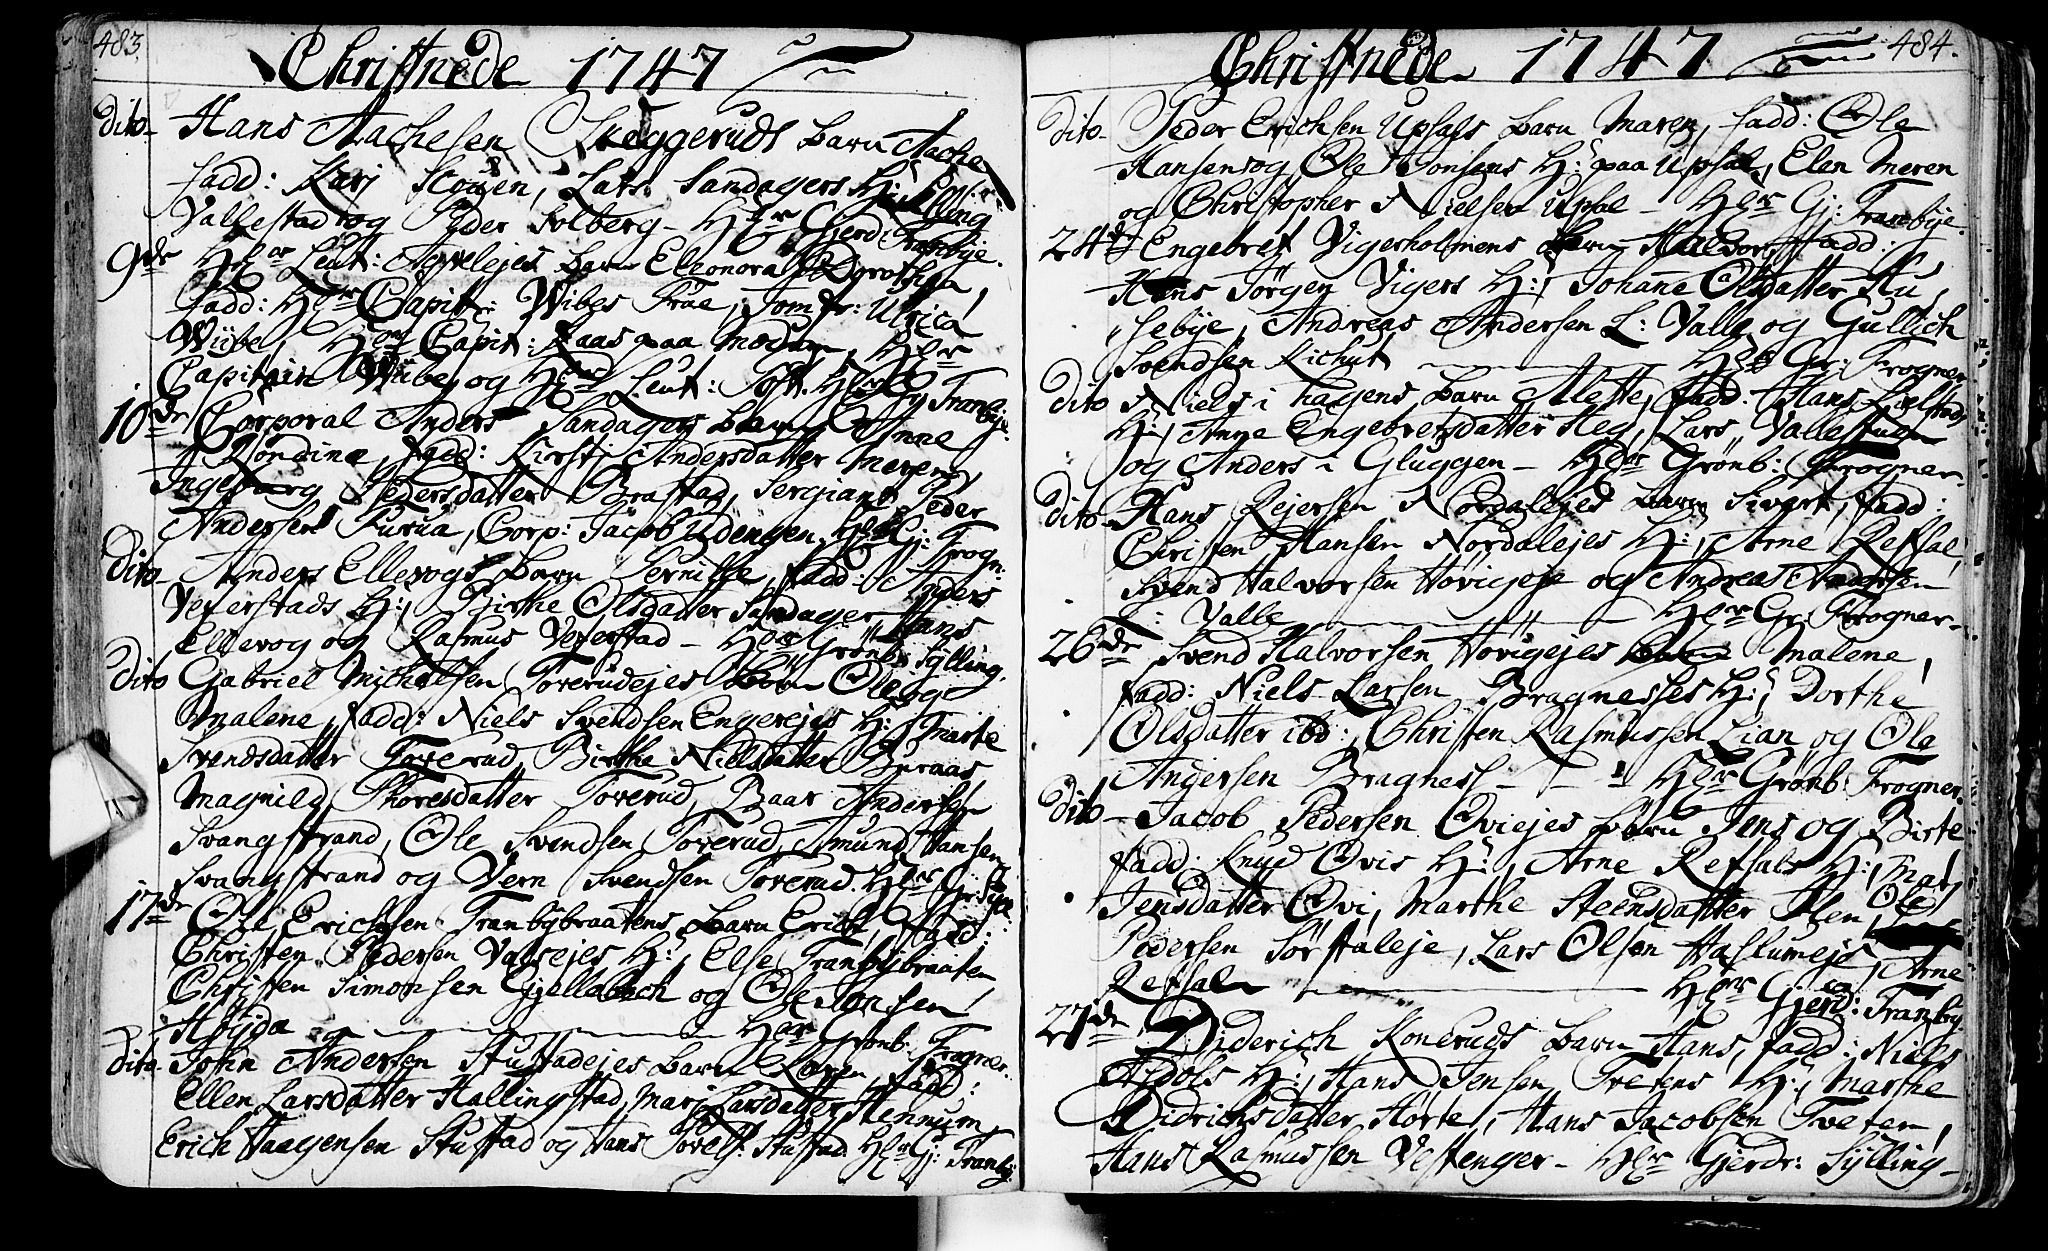 483.
Christnede 1747
dito- Hans Aachesen Skeggeruds barn Aache
fadd: Kari Scougen, Lars Sandagers H:, Elling
Vallestad og Peder Solberg - Hr Gjerd: Tranbye.
9de Hr Leut: Appelejes barn Eleonora Dorothea,
fadd: Hr Capit: Wibes Frue, Jomfr: Ulrica
Wibe, Hr Capit: Kaas paa Modum, Hr
Capitain Wibe, og Hr Leut: Toft. Hr G Tranbye.
10de Corporal Anders Sandagers barn Anne
Kondine, fadd: Kirsti Andersdatter Meren,
Ingeborg Pedersdatter Brastad, Sergiant Peder
Andersen Furua, Corp: Jacob Udengen. Hr G: Frogn:
Dito- Anders Ellevogs barn Pernille, fadd: Anders
Veferstads H:, Birthe Olsdatter Sandager, Hans
Ellevog og Rasmus Veferstad - Hr Grönb: Sylling.
dito Gabriel Michelsen Toverudejes barn Ole og
Malene, fadd: Niels Svendsen Engerejes H:, Marte
Svendsdatter Toverud, Birthe Nielsdatter Buraas,
Magnild Thoresdatter Toverud, Baar Andersen
Svangstrand, Ole Svendsen Toverud, Amund Hansen
Svangstrand og Vern Svendsen Toverud. Hr Gr: Syll:
17de Ole Erichsen Tranbybraatens barn Erich, fadd:
Christen Pedersen Valsejes H:, Else Tranbybraaten
Christen Simonsen Gjellabech og Ole Jonsen
Höyda Hr Grönb: Frogner.
dito- John Andersen Stustadejes barn Karen, fadd:
Ellen Larsdatter Hallingstad, Mari Larsdatter Hennum,
Erich Haagensen Stustad og Hans Povels: Stustad Hr G: Tranby:
484.
Christnede 1747
dito- Peder Erichsen Upsals barn Maren, fadd: Ole
Hansens og Ole Jonsens H: paa Upsal, Elen Meren
og Christopher Nielsen Upsal - Hr Gj: Tranbye.
24de Engebret Vigersholmens barn Halvor, fadd:
Hans Jörgen Vigers H:, Johanne Olsdatter Hu,
sebye, Andreas Andersen L: Valle og Gullich
Svendsen Kichut Hr Gr: Frogner
dito Niels i hagens barn Alette, fadd: Hans Lielstads
H:, Anne Engebretsdatter Heg, Lars Vallestuen
og Anders i Gluggen - Hr Grönb: Frogner.
dito- Hans Rejersen Nordalejes barn Sivert, fadd:
Christen Hansen Nordalejes H:, Arne Refsal,
Svend Halvorsen Hövigeje og Andreas Andersen
L: Valle Hr Gr: Frogner-
26de Svend Halvorsen Hövigejes barn Malene,
fadd: Niels Larsen Bragnesses H:, Dorthe
Olsdatter ibd:, Christen Rasmussen Lian og Ole
Andersen Bragness - - Hr Grönb: Frogner.
dito- Jacob Pedersen Oviejes barn Jens og Birte
fadd: Knud Ovis H:, Arne Refsals H:, Mari
Jensdatter Ovi, Marthe Steensdatter Alen, Ole
Pedersen Sörstaleje, Lars Olsen Haslumejs, Arne
Refsal Hr Gjerd: Tranby.
27de Diderich Koneruds barn Hans, fadd: Niels
Aidols H:, Hans Jensen Tvetens H:, Marthe
Didrichsdatter Horte, Hans Jacobsen Tveten,
Hans Rasmussen Vestenger - Hr Gjerdr: Sylling-